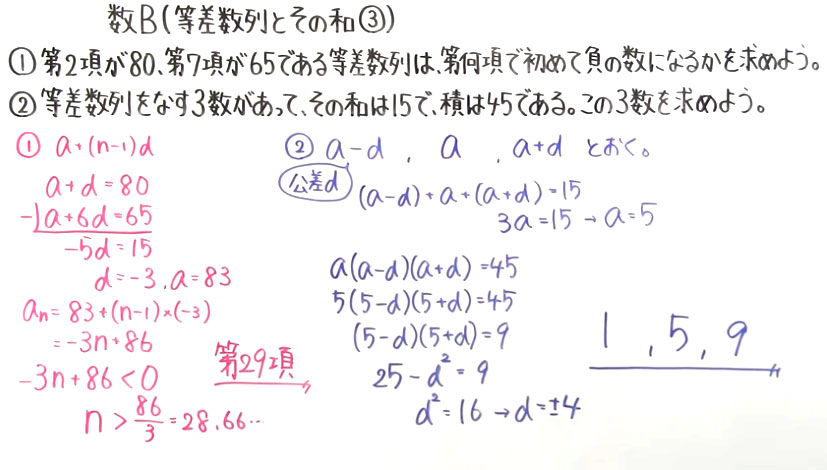 数B(等差数列とその和③)
①第2項が80、第7項が65である等差数列は、第何項で初めて負の数になるかを求めよう。
②等差数列をなす3数があって、その和は15で、積は45である。この3数を求めよう。
① a+(n-1)d
a+d=80
-)a+6d=65
-5d=15
d=-3,a=83
an=83+(n-1)×(-3)
=-3n+86
-3n+86<0
n>86/3=28.66…
第29項
② a-d , a , a+d とおく。
公差d
(a-d)+a+(a+d)=15
3a=15→a=5
a(a-d)(a+d)=45
5(5-d)(5+d)=45
(5-d)(5+d)=9
25-d²=9
d²=16→d=±4
1,5,9